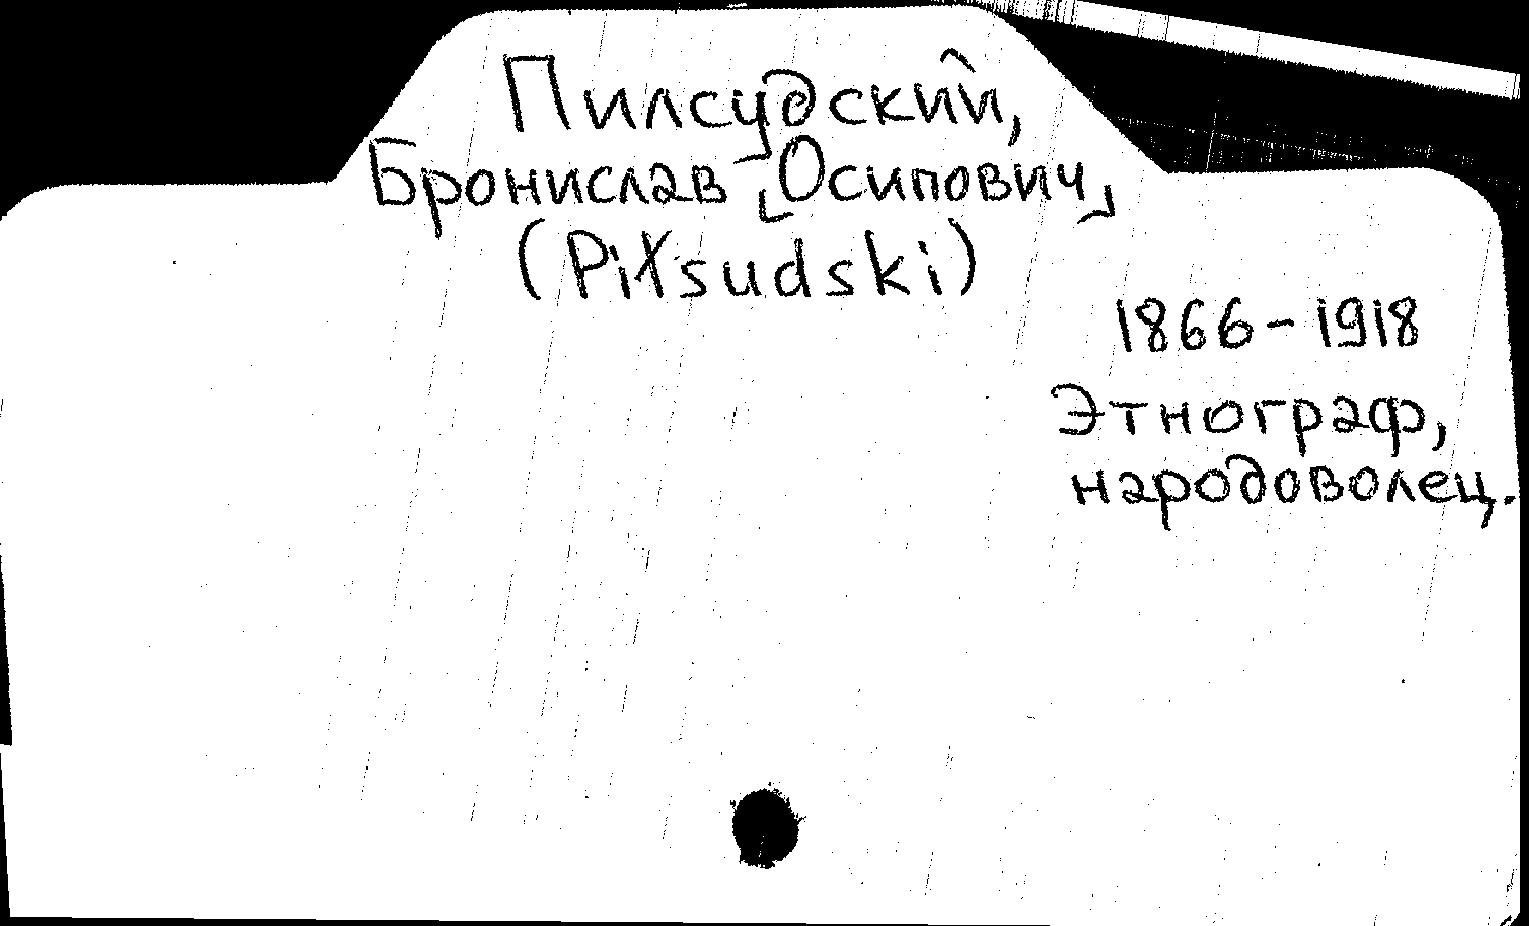 Пилсудский,
Бронислав [Осипович]
(Piłsudski)
1866-1918
Этнограф,
народоволец.